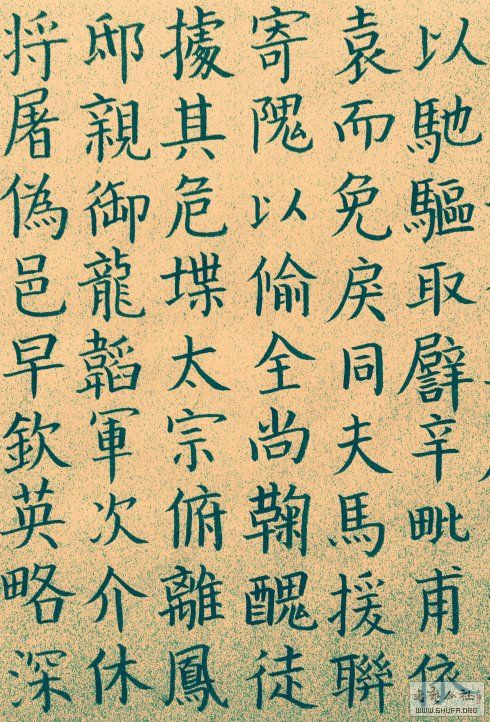 以馳驅取譬辛毗甫依
袁而免戾同夫馬援聯
寄隗以偷全尚鞠醜徒
據其危堞太宗俯離鳳
邸親御龍韜軍次介休
将屠偽邑早欽英略深
WWW.SHUFA.ORG